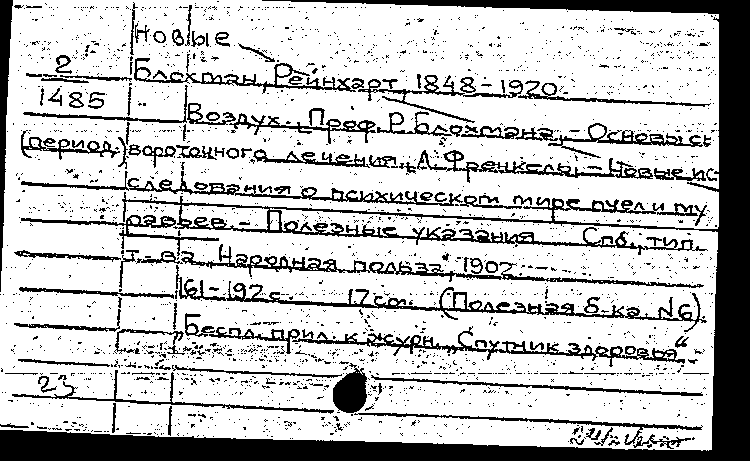 Новые
2 Блохман, Рейнхарт, 1848-1920.
1485 Воздух., Проф. Р. Блохмана, - Основы сы
(период.) вороточного лечения, А. Френкеля, - Новые ис-
следования о психическом мире пчел и му
равьев. - Полезные указания Спб., тип.
т-ва „Народная польза", 1902
161-192 с. 17 см. (Полезная б-ка. N6).
„Беспл. прил. к журн. „Спутник здоровья".-
23